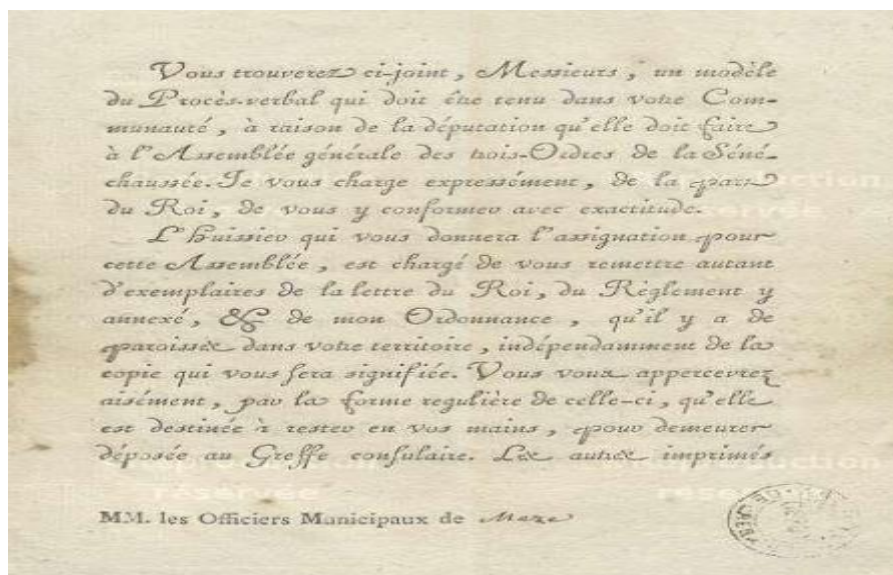 Vous trouverez ci-joint, Messieurs, un modèle
du Procès-verbal qui doit être tenu dans votre Com-
munauté, à raison de la députation qu'elle doit faire
à l'Assemblée générale des trois-Ordres de la Séné-
chaussée. Je vous charge expressément, de la part
du Roi, de vous y conformer avec exactitude.
L'Huissier qui vous donnera l'assignation pour
cette Assemblée, est chargé de vous remettre autant
d'exemplaires de la lettre du Roi, du Règlement y
annexé, & de mon Ordonnance, qu'il y a de
paroisses dans votre territoire, indépendamment de la
copie qui vous sera signifiée. Vous vous appercevrez
aisément, par la forme regulière de celle-ci, qu'elle
est destinée à rester en vos mains, pour demeurer
déposée au Greffe consulaire. Les autres imprimés
réservée
MM. les Officiers Municipaux de